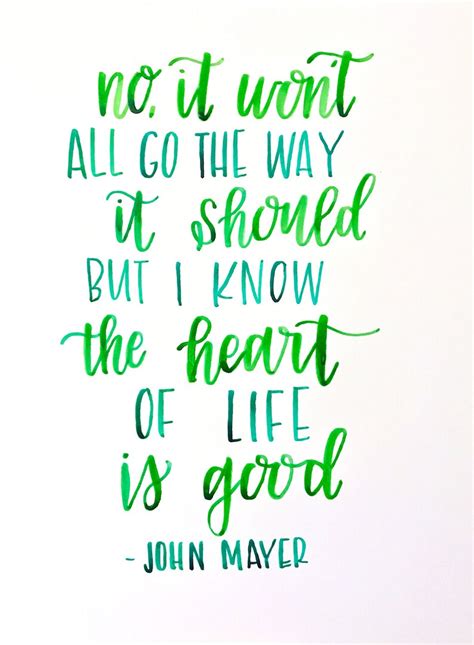 no, it won't
ALL GO THE WAY
it should
BUT I KNOW
the heart
OF LIFE
is good
- JOHN MAYER